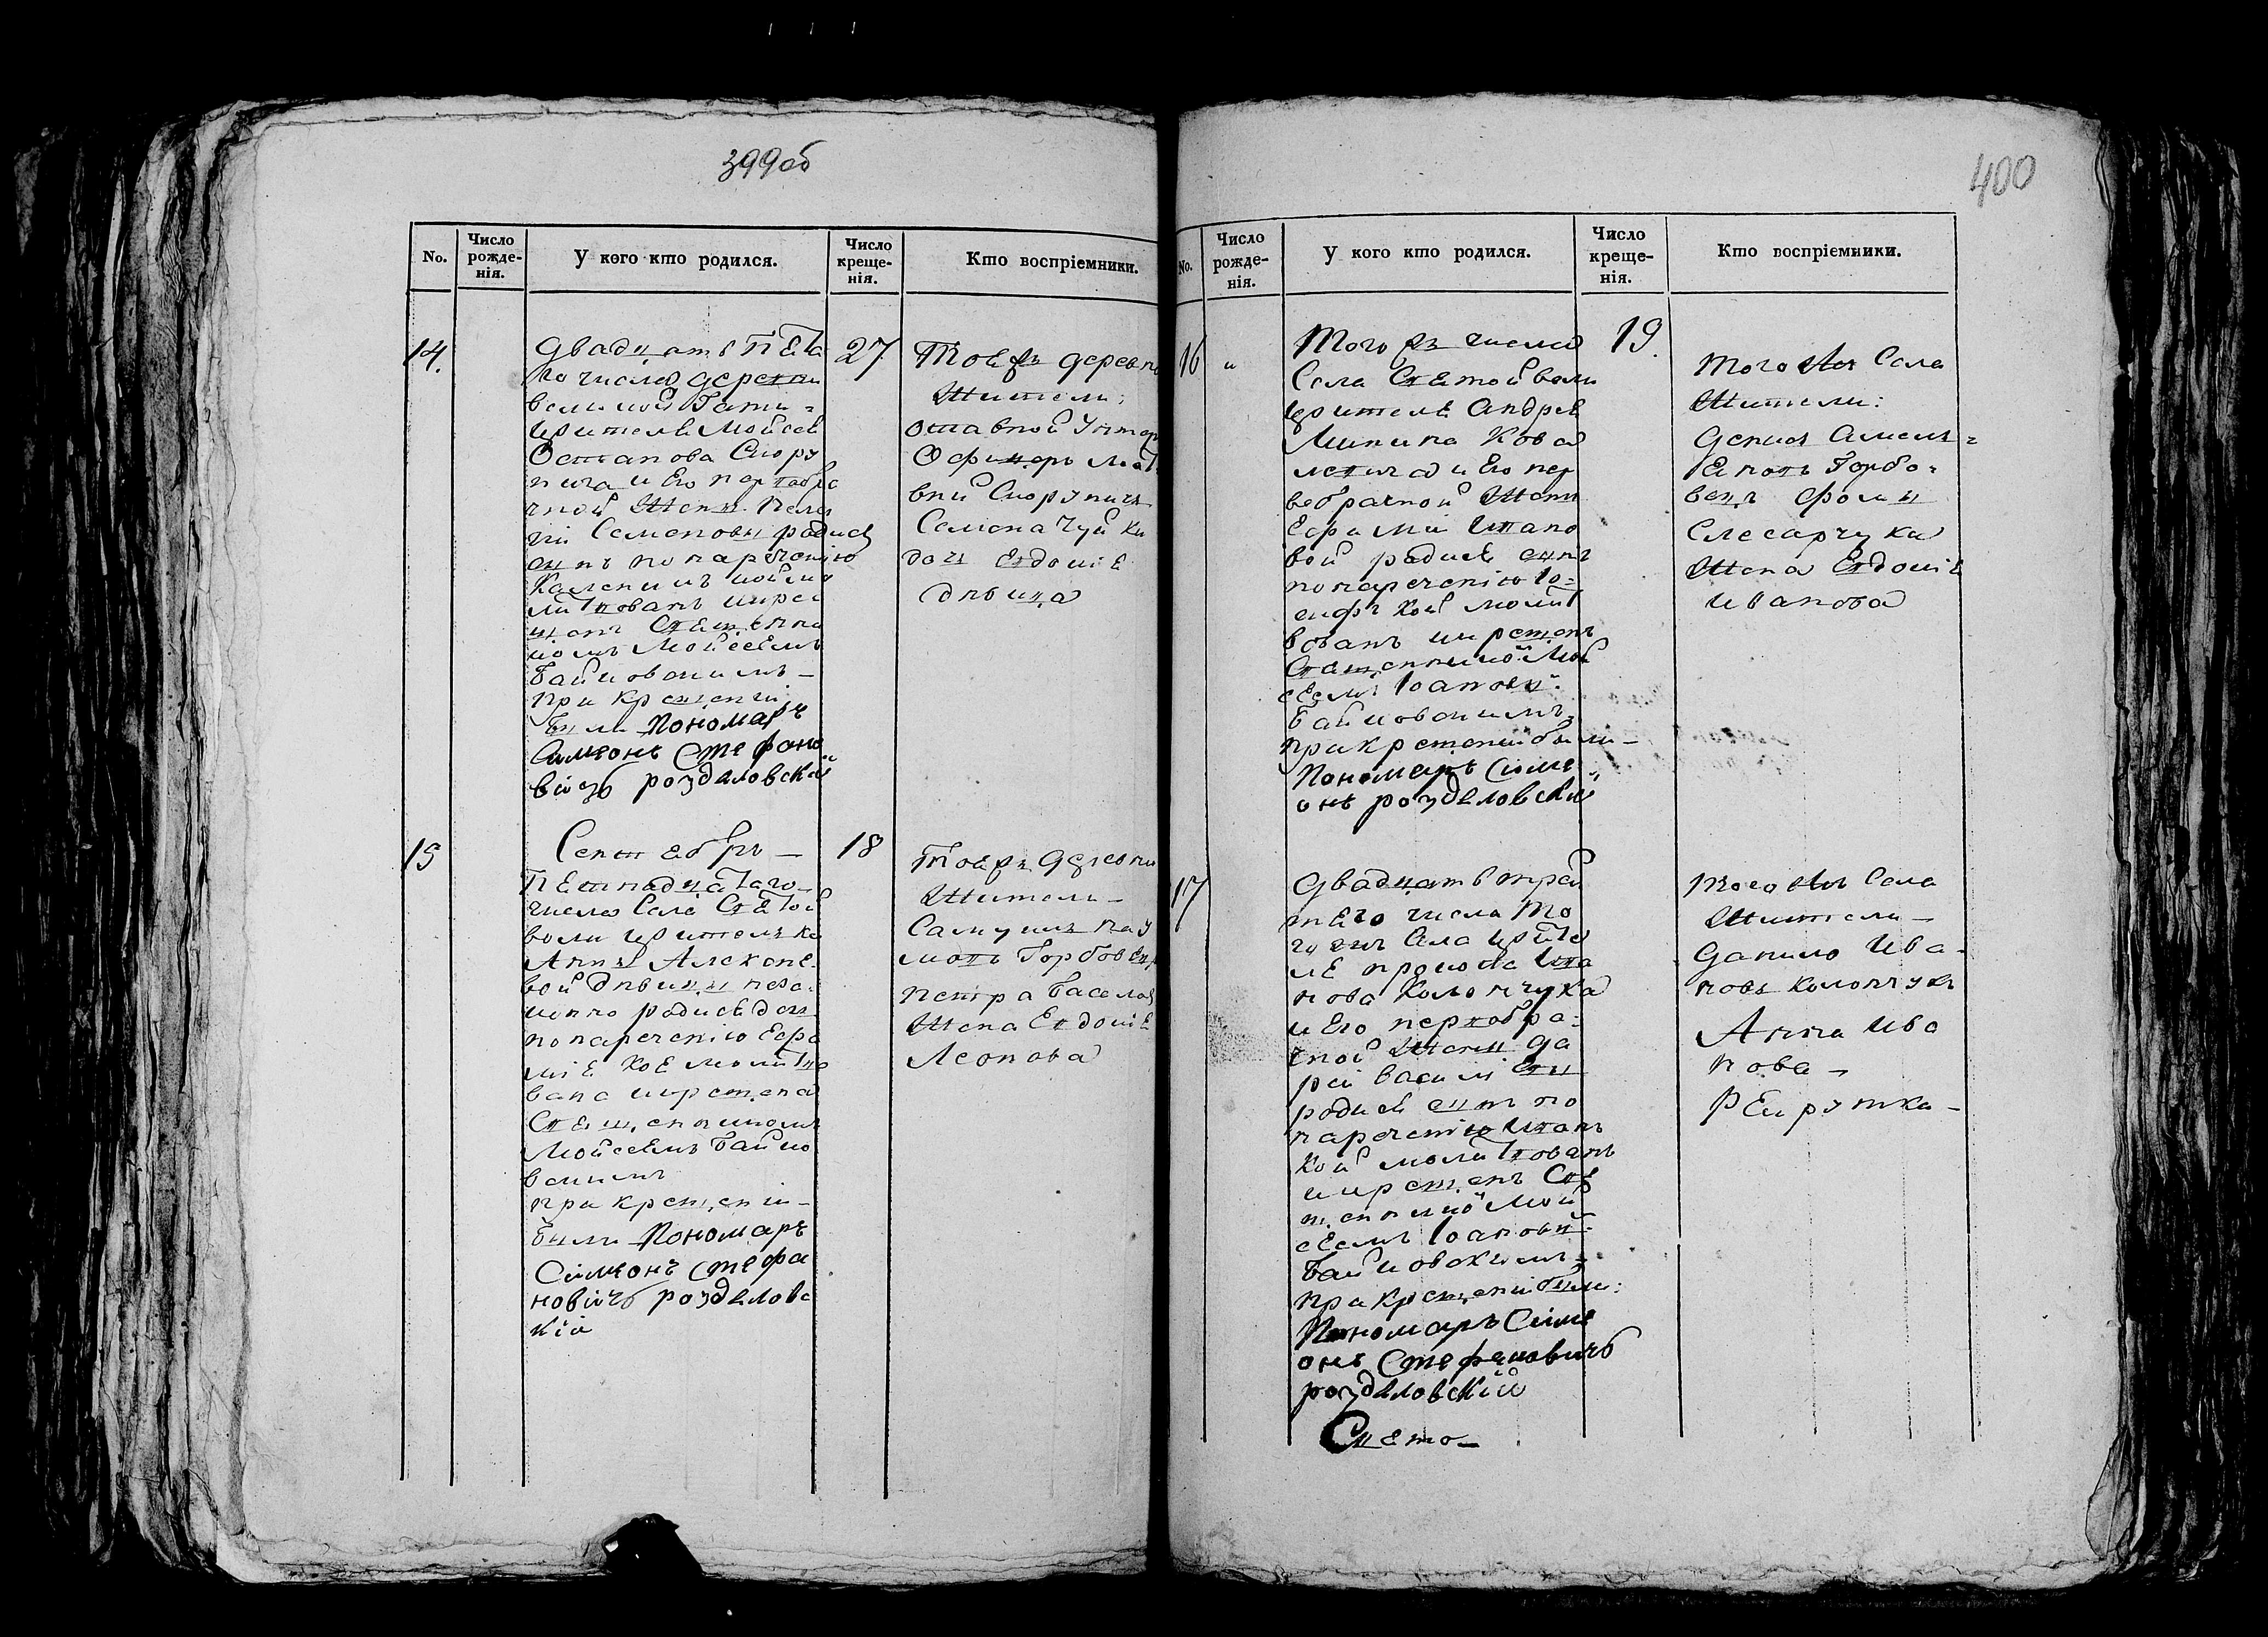 399об
No.
Число рожде-нія.
У кого кто родился.
Число креще-нія.
Кто воспріемники.
14.
Двадцать Пета
го числа деревни
вели
жителя Мойсея
Остапова Скору
пича и Его первобра
чной Жени Пела
гіи Семеновы родися
сынъ по нареченію
молитвованъ икре
щенъ Священни
комъ Мойсеемъ
Байковскимъ —
при крещеніи
были Пономарь
Симеонъ Стефано
вичъ роздяловский
27
Тоежъ деревни
Жители:
Офицеръ
Семена Чуйки
дочь Евдокія
дѣвица
15
Септябрь —
Петнадцатаго
числа Села Святой
воли жителька
Анны Алексие
вой дѣвицы неза
конно родися дочь
по нареченію Ефи
мія коя молитво
вана икрещена
Священникомъ
Мойсеемъ Байко
вскимъ
при крещеніи —
были Пономарь
Симеонъ Стефа
новичъ роздялове
кій
18
Тоежъ Деревни
Жители —
Самуилъ Нау
мовъ Горбовец
Петра Баселов
Жена Евдокія
Леонова
400
No.
Число рожде-нія.
У кого кто родился.
Число креще-нія.
Кто воспріемники.
16
"
Того жъ числа
Села Святой воли
жителя Андрея
Минина Кова
левича и Его пер
вобрачной Жени
Ефимии Ивано
вой родися сынъ
по нареченію Іо=
сифъ кой молит
вованъ икрещенъ
Священникой Мой
сеемъ Іоанов:
Байковскимъ
при крещении были —
Пономарь Симе
онъ роздяловский
19.
того жъ Села
Жители:
Денис Амель=
яновъ Горбо=
вецъ Фоми
Слесарчука
Жена Евдокія
Иванова
17
Двадцать трей
тяго числа То
гожъ Села жите
ля прокопа Ива
нова Колончука
и Его первобра:
чной Жени Да
реи Василевы
родися сынъ по
нареченію Иванъ
кой молитвованъ
икрещенъ Свя
щенникой Мой
сеемъ Іоанов:
Байковскимъ
при крещении были:
Пономарь Симе
онъ Стефановичъ
роздяловский
того жъ Села
Жители —
Данило Ива-
новъ Колончукъ
Анна Ива
нова —
рекрутка —
Свято —